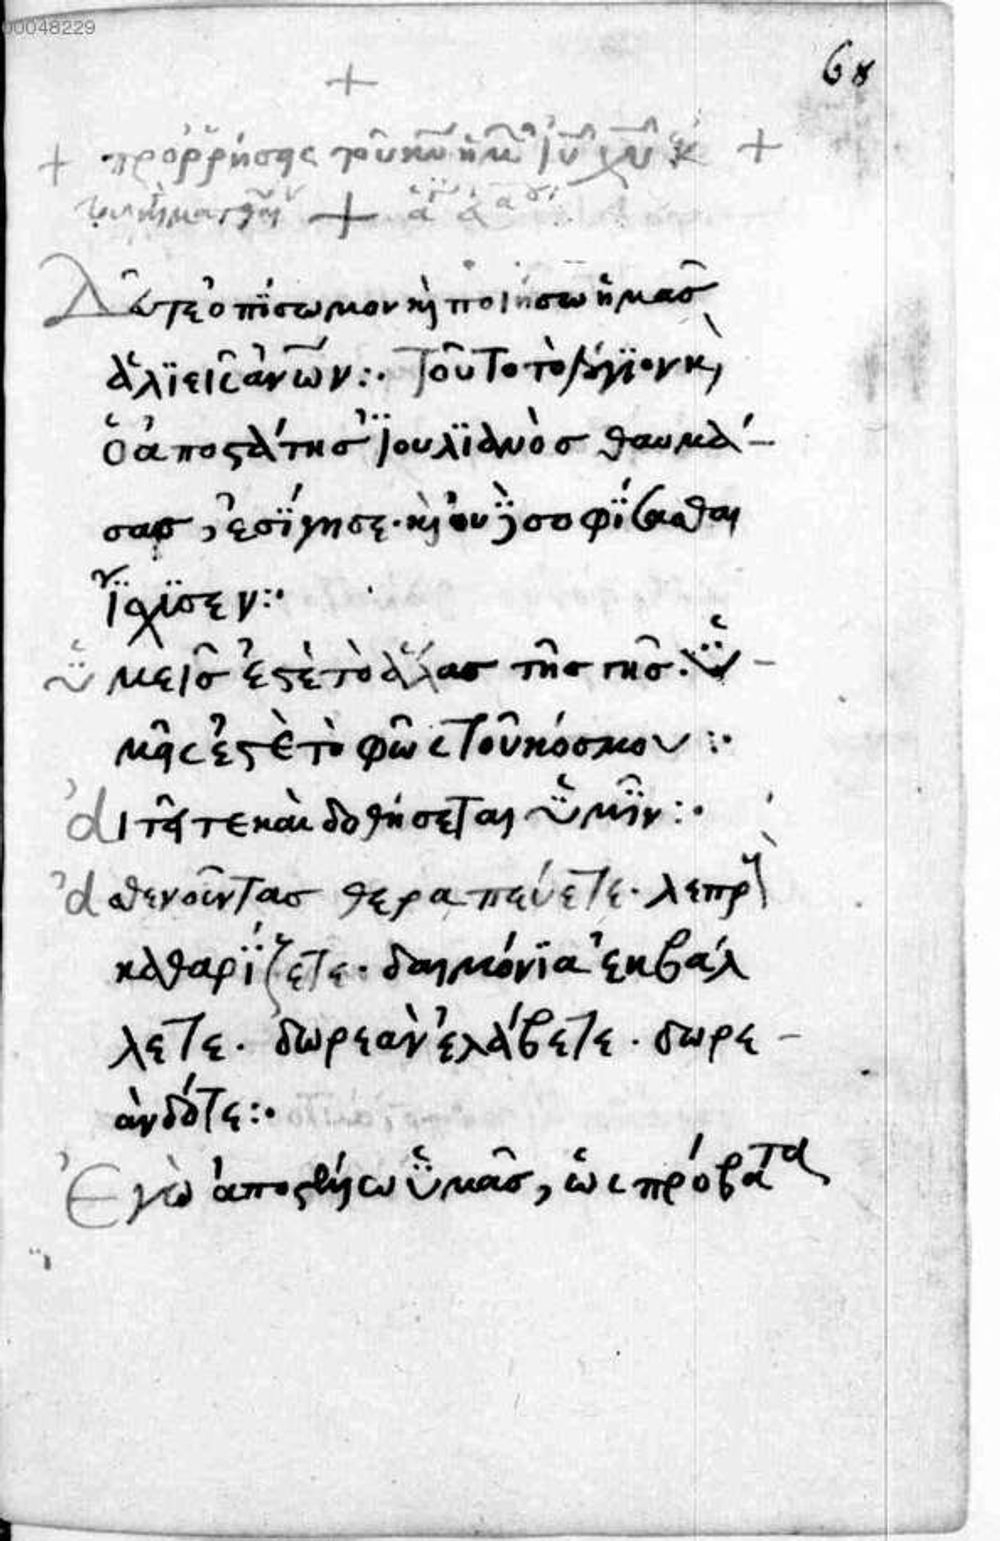 00048229
68
+
+ προρρήσης τοῦ κῡ ἡμῶ ἰῡ χῡ κ +
+
Δεῦτε ὀπίσω μου κὶ ποιήσω ἡμᾶσ
ἁλϊεῖς ἀν̅ω̅ν :· Τοῦτο τὸ λόγϊον κὶ
ὁ ἀποϛάτησ Ἰουλϊανὸσ θαυμά-
σασ, ἐσΐγησε· κὶ οὐ σοφΐσασθαι
ΐσχϊσεν :·
ὑμεῖσ ἐϛὲ τὸ ἅλασ τῆσ γῆσ. ὑ-
μῆς ἐϛὲ τὸ φῶς τοῦ κόσμου :·
αἰτῆτε καὶ δοθήσεται ὑμῖν :·
ἀσθενοῦντασ θεραπεύετε· λεπροὺ
καθαρΐζετε· δαιμόνϊα ἐκβάλ
λετε· δωρεὰν ἐλάβετε· δωρε-
ὰν δότε :·
Ἐγὼ ἀποϛέλω ὑμᾶσ, ὡς πρόβατα